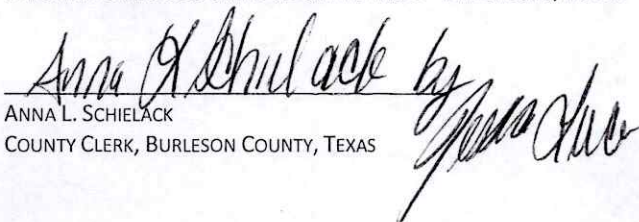 Anna L Schielack by
ANNA L. SCHIELACK
COUNTY CLERK, BURLESON COUNTY, TEXAS